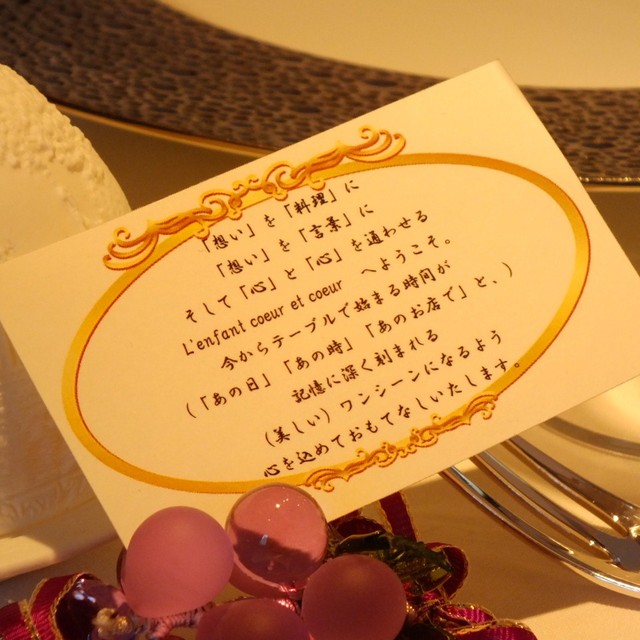 「想い」を「料理」に
「想い」を「言葉」に
そして「心」と「心」を通わせる
L'enfant coeur et coeur へようこそ。
今からテーブルで始まる時間が
(「あの日」「あの時」「あのお店で」と、)
記憶に深く刻まれる
(美しい) ワンシーンになるよう
心を込めておもてなしいたします。